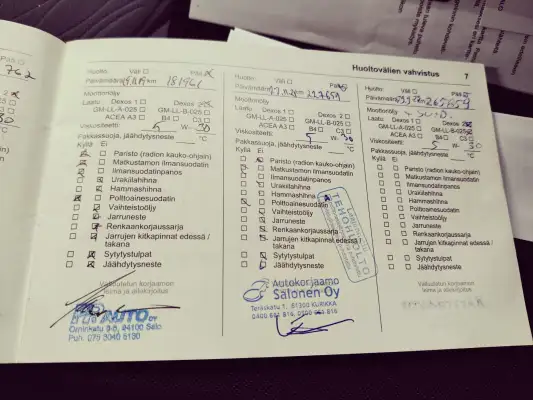 Huoltovälien vahvistus 7
Huolto: Väli Pää
Päivämäärä km 181961
Moottoriöljy
Laatu Dexos 1 Dexos 2
GM-LL-A-025 GM-LL-B-025
ACEA A3 B4 C3
Viskositeetti 5 W- 30
Pakkassuoja, jäähdytysneste °C
Kyllä Ei
Paristo (radion kauko-ohjain)
Matkustamon ilmansuodatin
Ilmansuodatinpanos
Urakiilahihna
Hammashihna
Polttoainesuodatin
Vaihteistoöljy
Jarruneste
Renkaankorjaussarja
Jarrujen kitkapinnat edessä /
takana
Sytytystulpat
Jäähdytysneste
Valtuutetun korjaamon
leima ja allekirjoitus
AUTO OY
24100 Salo
Huolto: Väli Pää
Päivämäärä km 217659
Moottoriöljy
Laatu Dexos 1 Dexos 2
GM-LL-A-025 GM-LL-B-025
ACEA A3 B4 C3
Viskositeetti: 5 W- 30
Pakkassuoja, jäähdytysneste °C
Kyllä Ei
Paristo (radion kauko-ohjain)
Matkustamon ilmansuodatin
Ilmansuodatinpanos
Urakiilahihna
Hammashihna
Polttoainesuodatin
Vaihteistoöljy
Jarruneste
Renkaankorjaussarja
Jarrujen kitkapinnat edessä /
takana
Sytytystulpat
Jäähdytysneste
TEHOHUOLTO
Autokorjaamo
Salonen Oy
61300 KURIKKA
Huolto: Väli Pää
Päivämäärä 265659
Moottoriöljy
Laatu Dexos 1 Dexos 2
GM-LL-A-025 GM-LL-B-025
ACEA A3 B4 C3
Viskositeetti: 5 W- 30
Pakkassuoja, jäähdytysneste °C
Kyllä Ei
Paristo (radion kauko-ohjain)
Matkustamon ilmansuodatin
Ilmansuodatinpanos
Urakiilahihna
Hammashihna
Polttoainesuodatin
Vaihteistoöljy
Jarruneste
Renkaankorjaussarja
Jarrujen kitkapinnat edessä /
takana
Sytytystulpat
Jäähdytysneste
Valtuutetun korjaamon
leima ja allekirjoitus